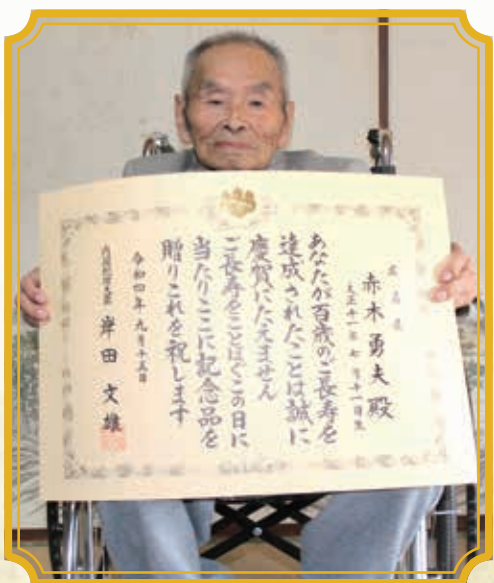 広島県
赤木勇夫殿
大正十一年七月十一日生
あなたが百歳のご長寿を
達成されたことは誠に
慶賀にたえません
ご長寿をことほぐこの日に
当たりここに記念品を
贈りこれを祝します
令和四年九月十五日
内閣総理大臣 岸田文雄